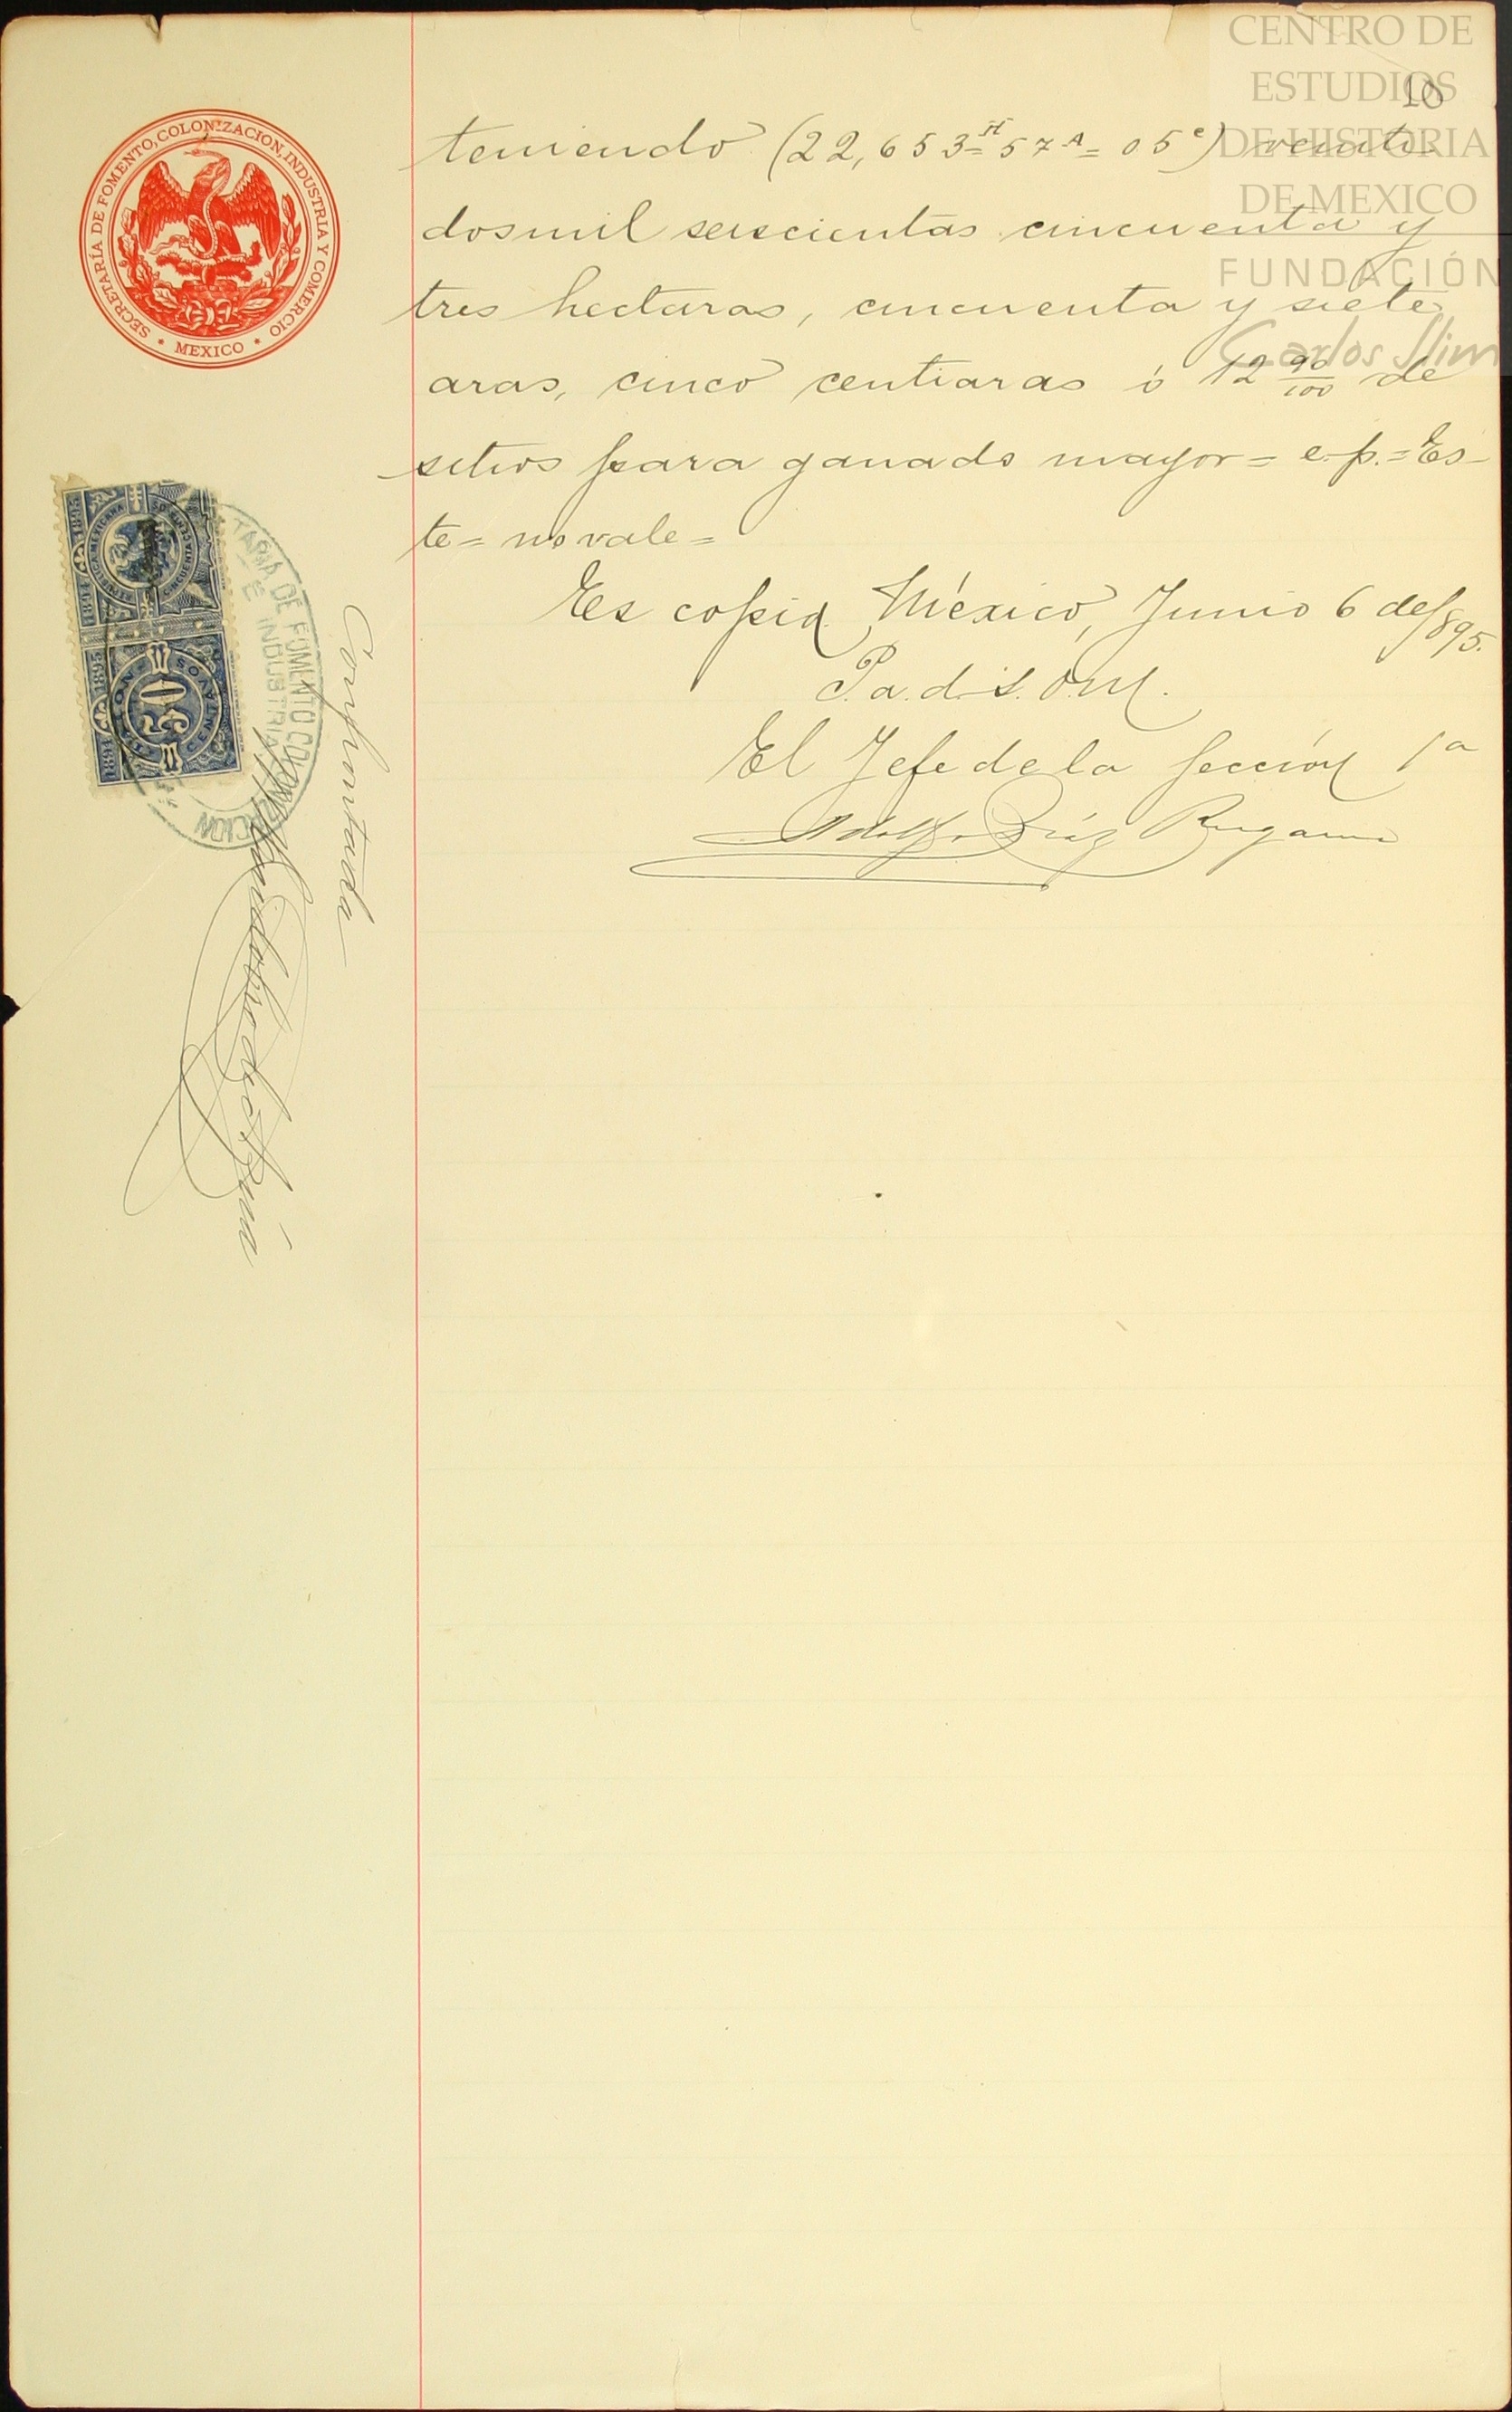 CENTRO DE
ESTUDIOS
DE HISTORIA
DE MEXICO
FUNDACIÓN
Carlos Slim
10
SECRETARÍA DE FOMENTO, COLONIZACION, INDUSTRIA Y COMERCIO
• MEXICO •
teniendo (22,653H=57A=05c) veinti-
dosmil seiscientas cincuenta y
tres hectaras, cincuenta y siete
aras, cinco centiaras ó 12 90/100 de
sitios para ganado mayor= e.p.=Es-
te= no vale=
Es copia. México, Junio 6 de 1895.
P.a.d.s.O.M.
El Jefe de la Sección 1a
Adolfo Díaz Rugama
1894 1895
REPUBLICA MEXICANA
CINCUENTA CENTS
1894 1895
50
CENTAVOS
TARIA DE FOMENTO COLONIZACION
E INDUSTRIA
Confrontada